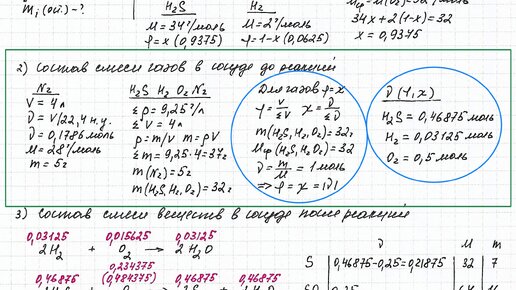 mᵢ(ост.) - ?
H₂S
H₂
M = 34 г/моль
M = 2 г/моль
φ = x (0,9375)
φ = 1-x (0,0625)
34x + 2(1-x) = 32
x = 0,9375
2) Состав смеси газов в сосуде до реакций
N₂
V = 4л
ν = V/22,4 н.у.
ν = 0,1786 моль
M = 28 г/моль
m = 5г
H₂S H₂ O₂ N₂
Σρ = 9,25 г/л
ΣV = 4л
ρ = m/V m = ρV
Σm = 9,25·4 = 37г
m(N₂) = 5г
m(H₂S, H₂, O₂) = 32г
Для газов φ = x
φ = V/ΣV x = ν/Σν
m(H₂S, H₂, O₂) = 32г
Mср(H₂S, H₂, O₂) = 32
ν = m/M = 1 моль
=> φ = x = |ν|
ν (φ, x)
H₂S = 0,46875 моль
H₂ = 0,03125 моль
O₂ = 0,5 моль
3) Состав смеси веществ в сосуде после реакций
0,03125 0,015625 0,03125
2H₂ + O₂ → 2H₂O
0,234375
0,46875 (0,484375) 0,46875 0,46875
ν M m
S 0,46875-0,25=0,21875 32 7